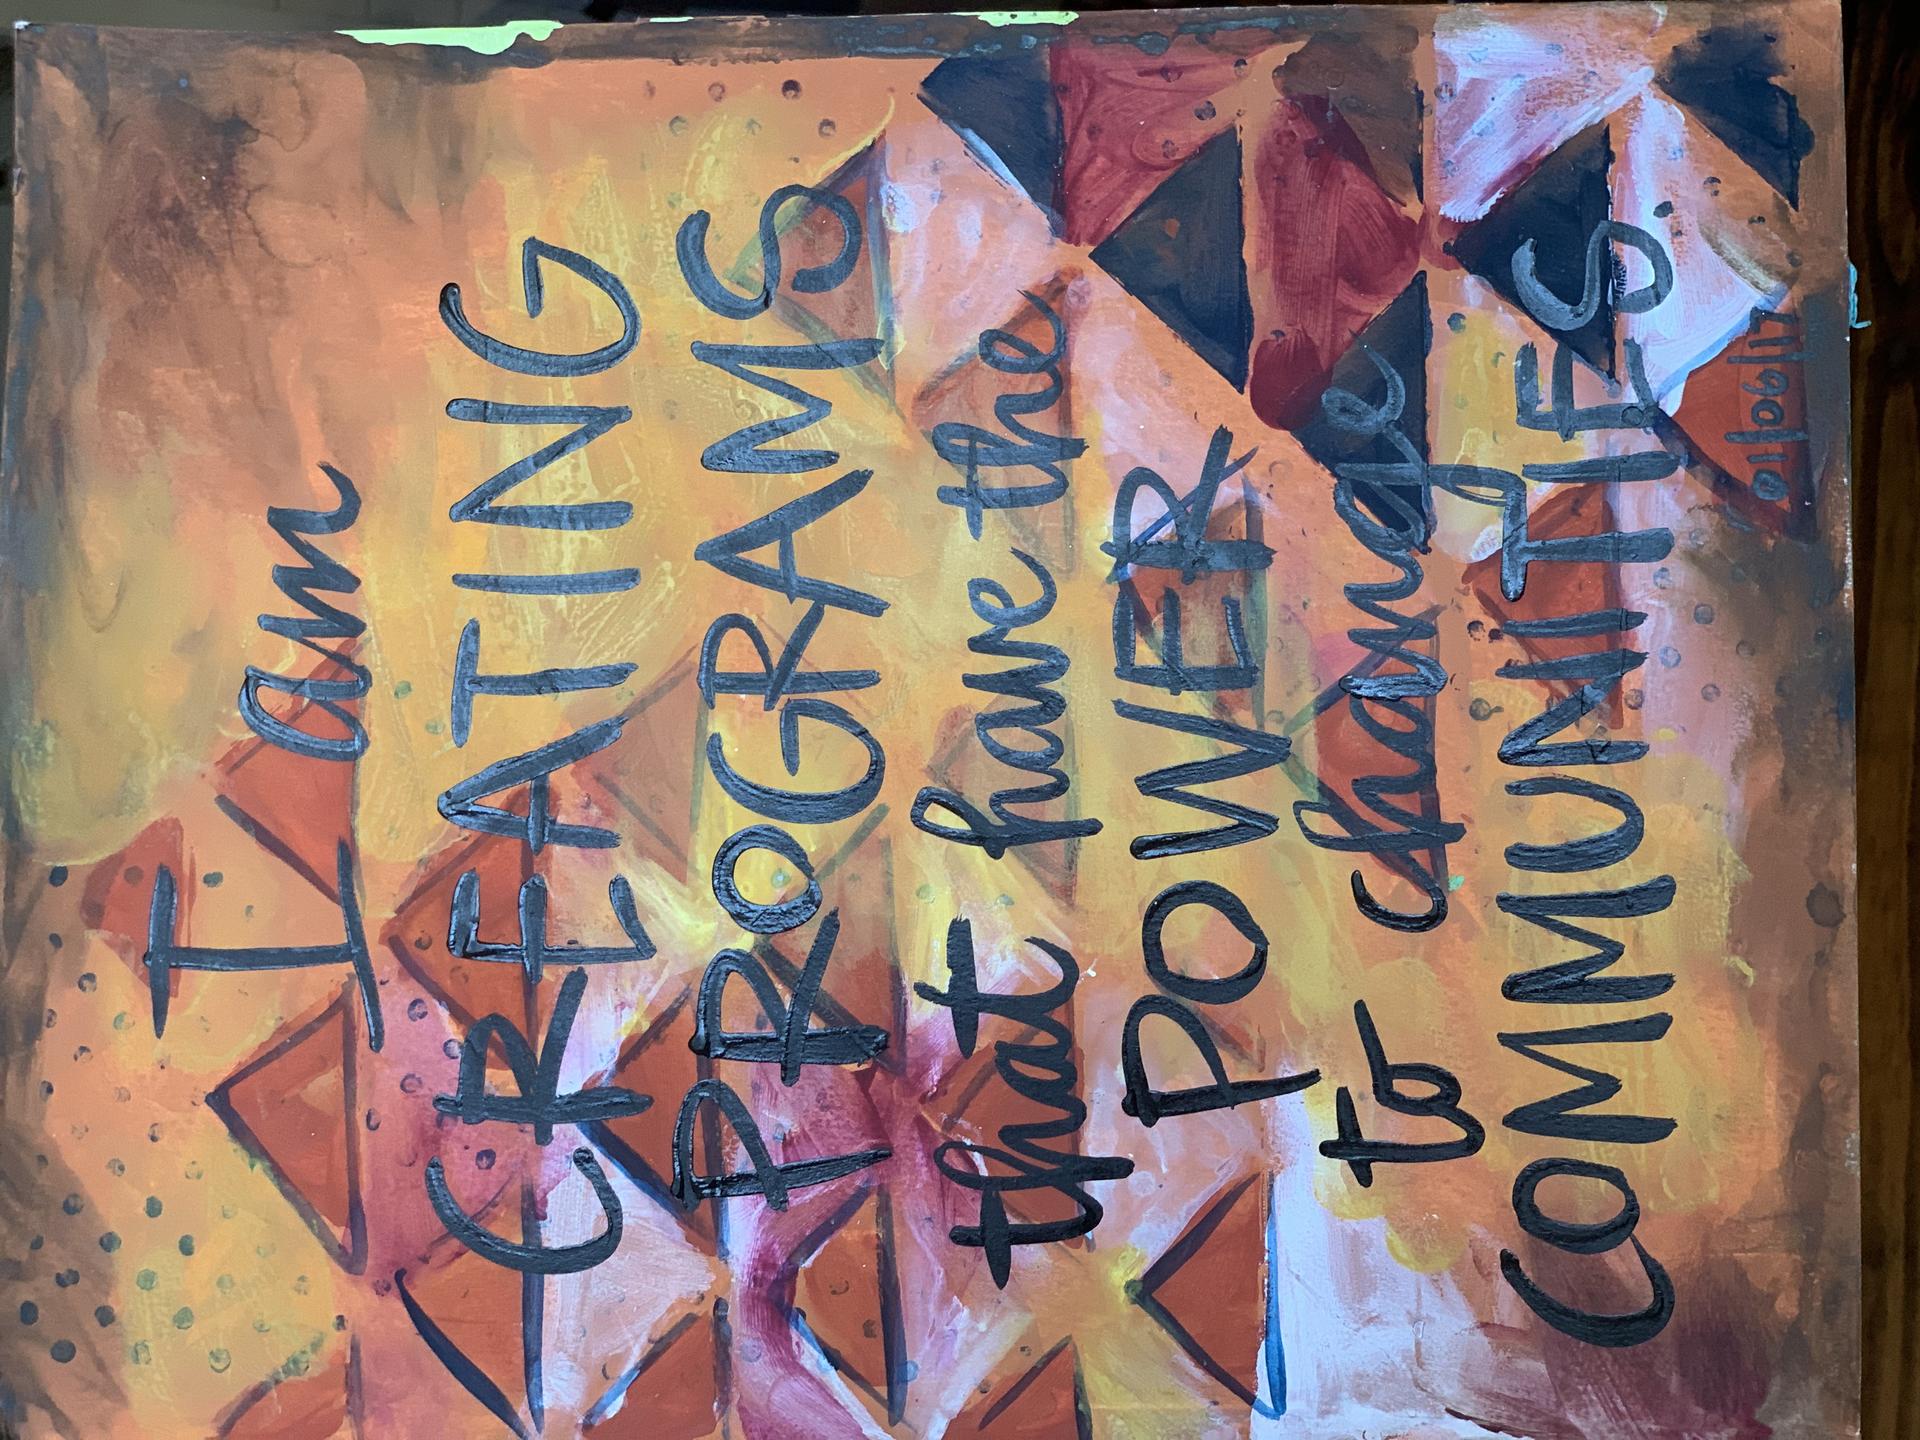 I am
CREATING
PROGRAMS
that have the
POWER
to change
COMMUNITIES